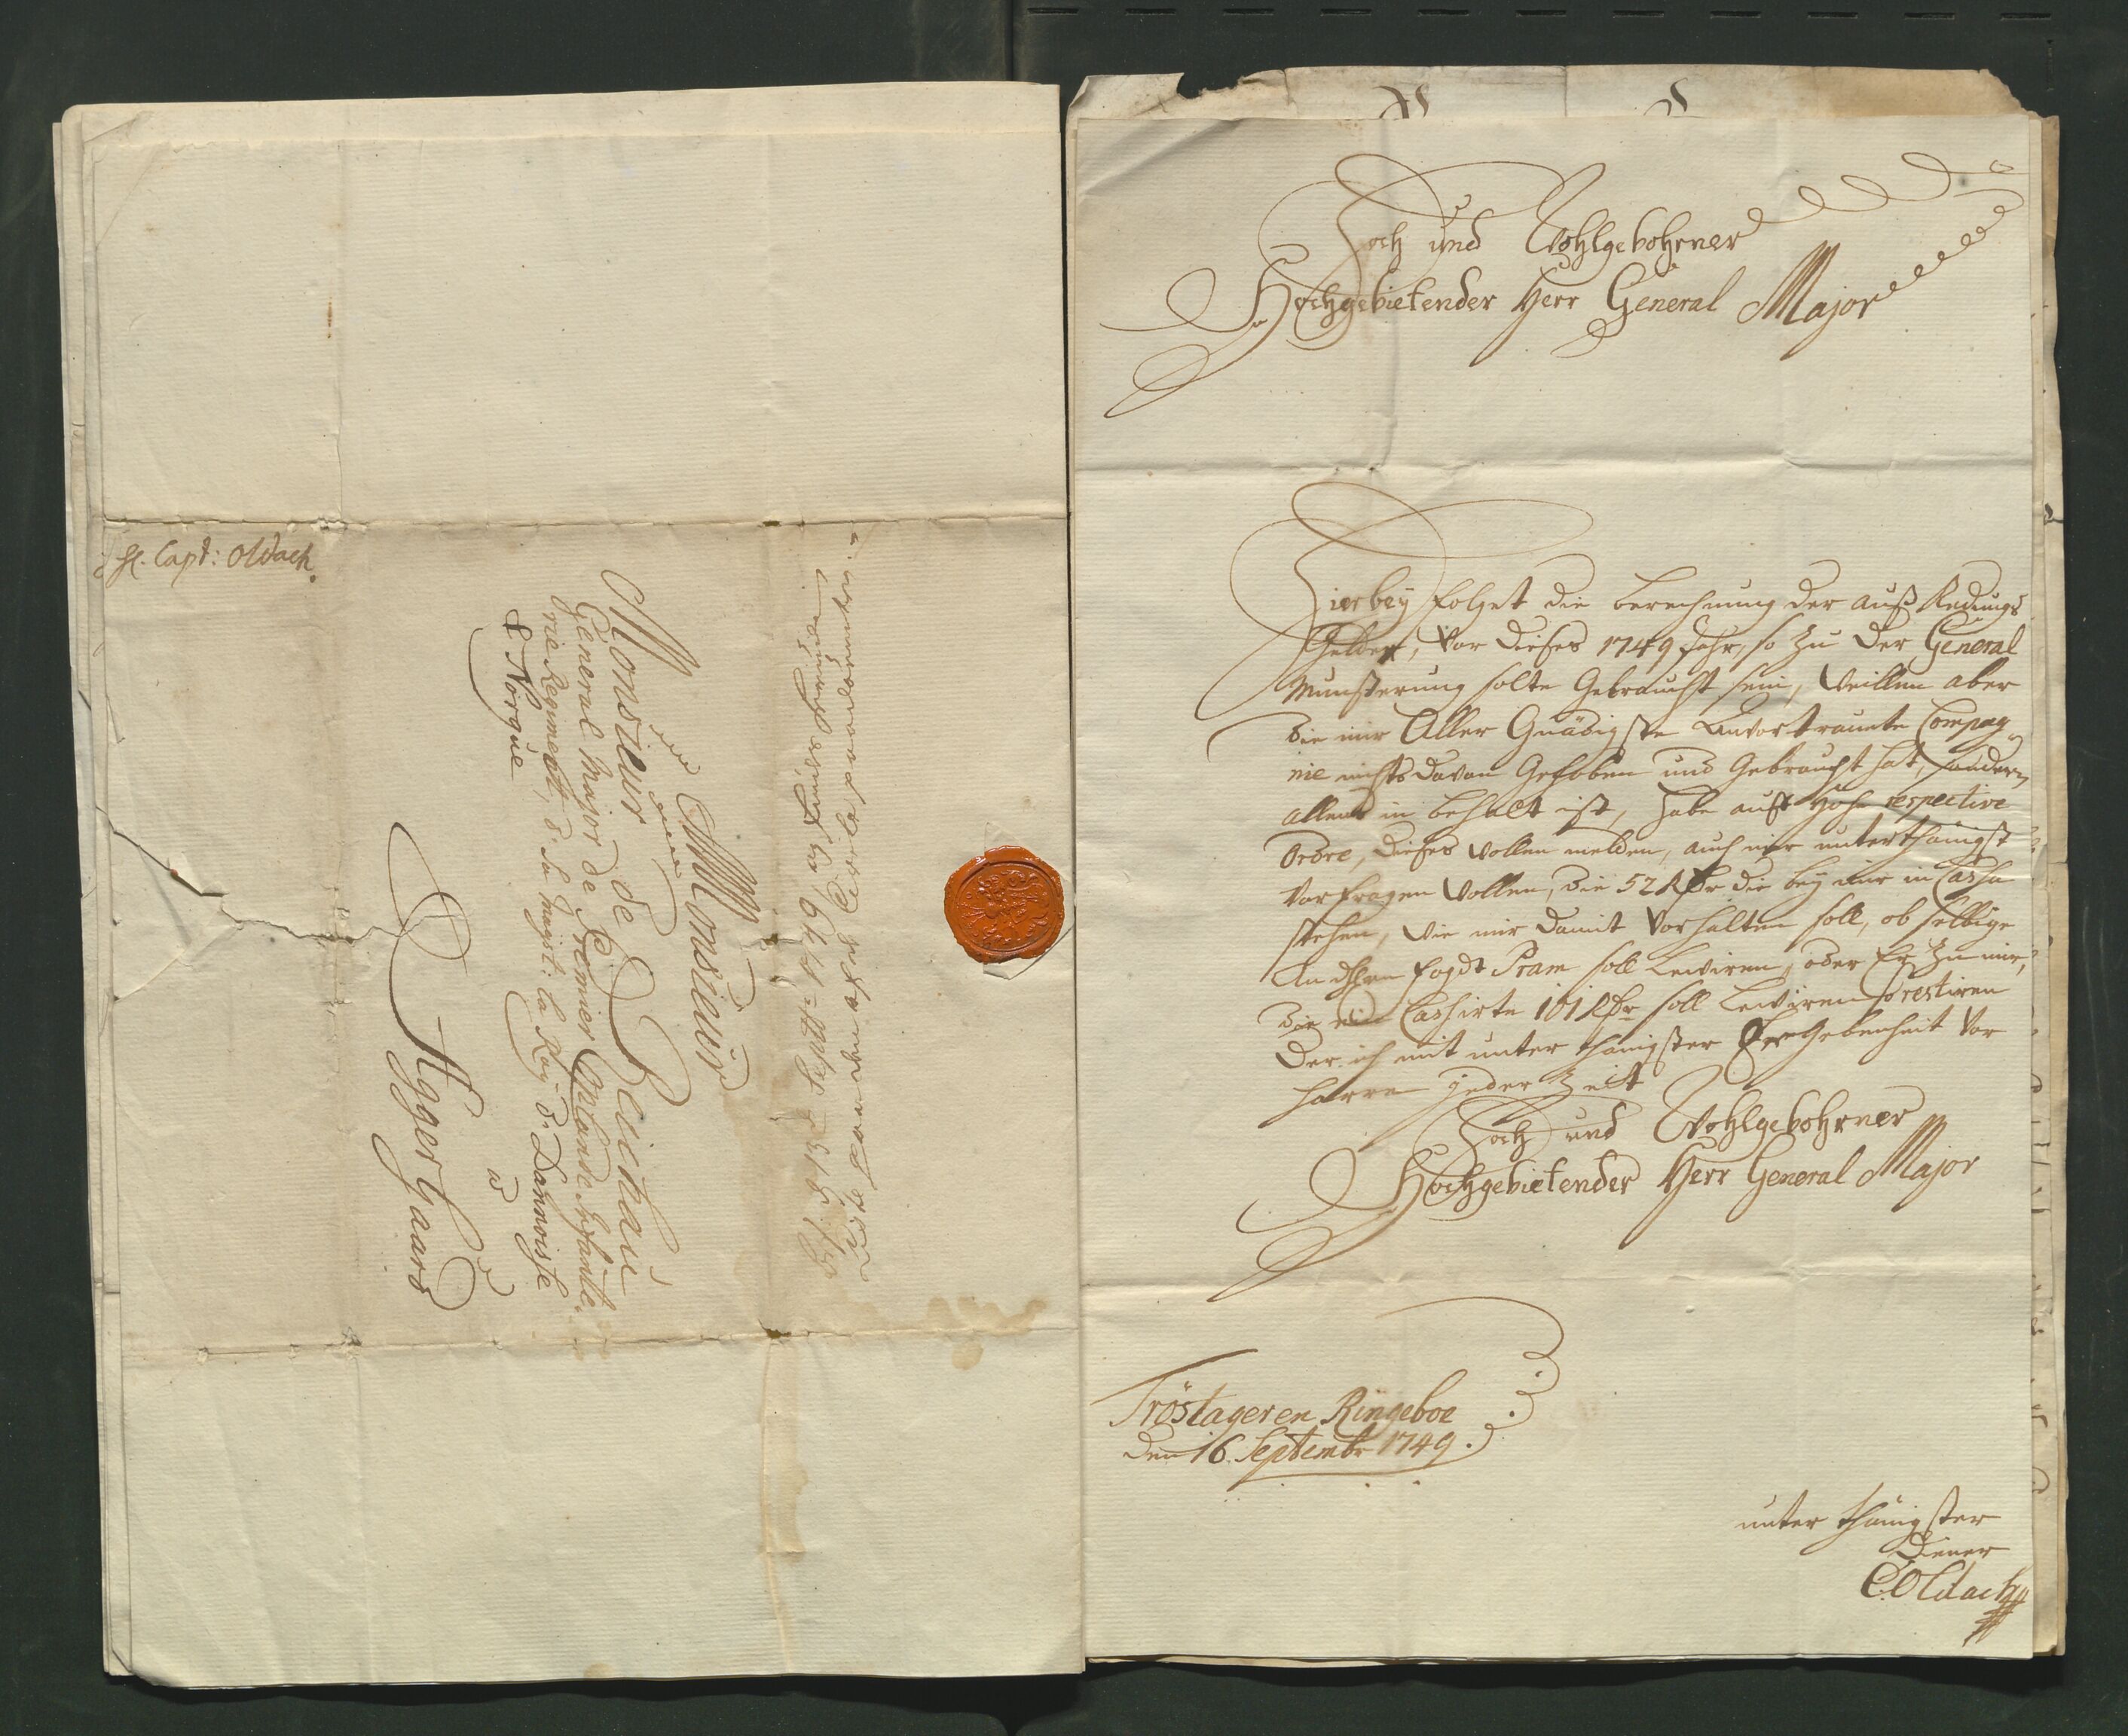 H. Capt: Oldach.
Monsieur
Monsieur de Reichau
General Major de Premier Oplandse Infante-
rie Regiment, d. Sa Majst: la Roy d. Dannoisse
& Norque
à
Aggerhaard
d 13 Septbr 1749
Hoch und Wohlgebohrner
Hochgebietender Herr General Major
Hierbey folget die berechnung der auß Redungs
Gelder, Vor dieses 1749 Jahr, so zu der General
Munsterung solte Gebraucht sein, Weillen aber
die mir Aller Gnädigste Anvortraute Compag-
nie nichts davon Gehoben und Gebraucht hat, sondern
alles in behalt ist, habe auff Hohe respective
Ordre, dieses Wollen melden, auch mir unterthänigst
Vorfragen Wollen, die 52 Rdr die bey mir in Cassa
stehen, Wie mir damit Vorhalten soll, ob selbige
An Fogdt Pram soll Leviren, oder Er zu mir,
die Cassirte 101 Rdr soll Leviren so restiren
der ich mit unter thänigster Er Gebenheit Vor
harre jeder Zeit
Hoch und Wohlgebohrner
Hochgebietender Herr General Major
Tröstageren Ringeboe
den 16. Septembr 1749.
unter thänigster
Diener
C. Oldach